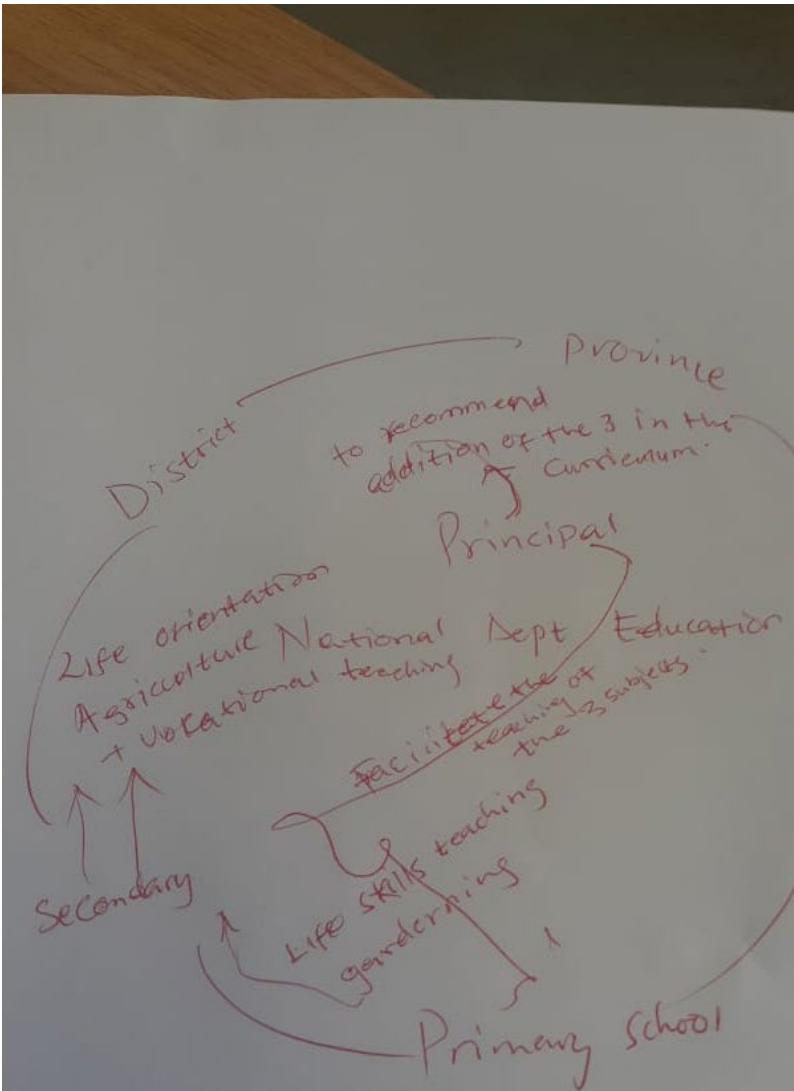 Province
District
to recommend
addition of the 3 in the
Curricnum.
Principal
Life orientation
Agriccolture
+ Vokational teaching
National Dept Education
Facilitate the
teaching of
the 3 subjects.
Secondary
Life skills teaching
garderning
Primary school